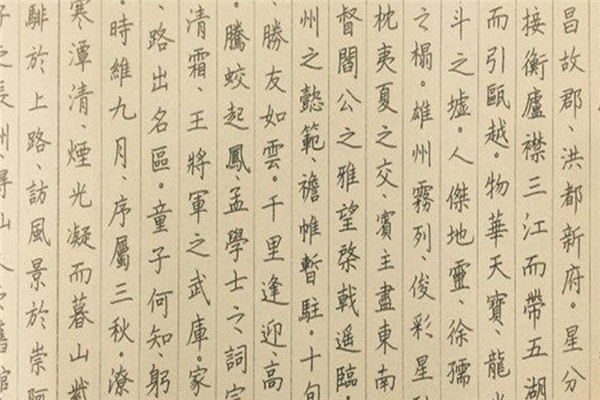 昌故郡、洪都新府。星分
接衡廬襟三江而帶五湖
而引甌越。物華天寶、龍光
斗之墟。人傑地靈、徐孺
之榻。雄州霧列、俊彩星
枕夷夏之交、賓主盡東南
督閻公之雅望棨戟遥臨。
州之懿範、襜帷暫駐。十旬
、勝友如雲。千里逢迎、高
。騰蛟起鳳、孟學士之、詞宗
清霜、王將軍之武庫。家
、路出名區。童子何知、躬
。時維九月、序屬三秋。潦
寒潭清、煙光凝而暮山紫
騑於上路、訪風景於崇阿
之長洲、得仙人之舊館